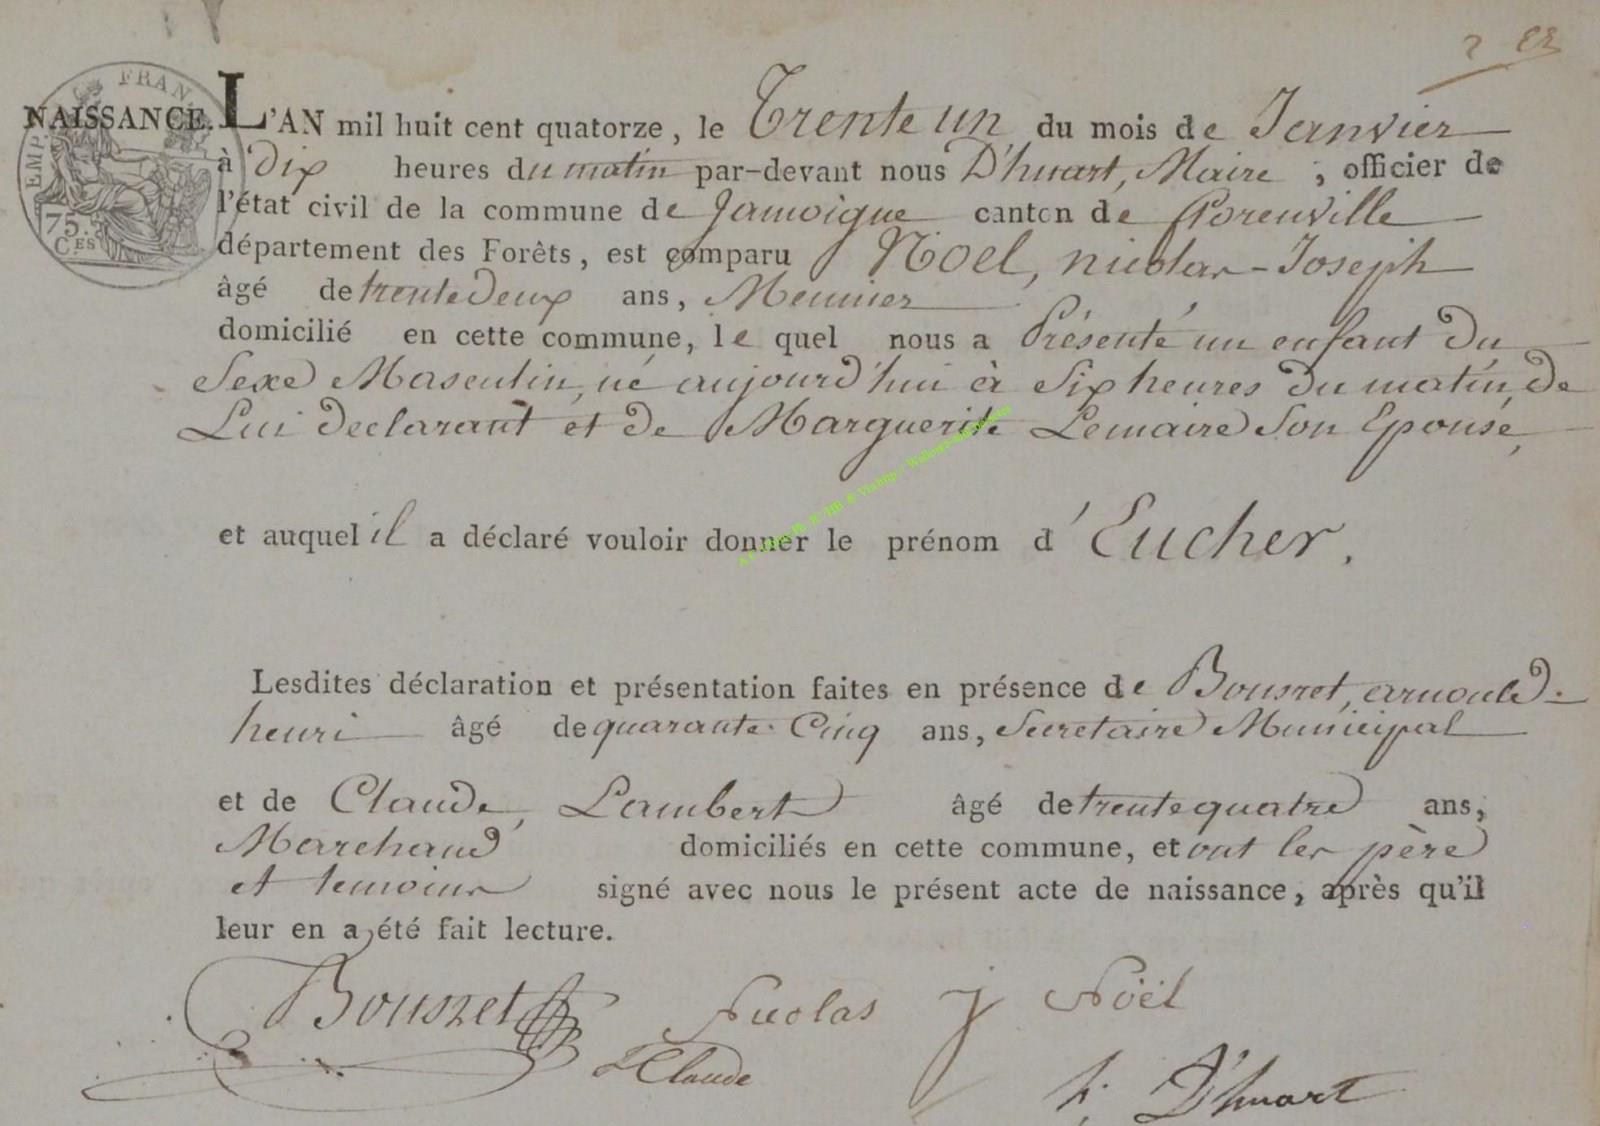 2 23
EMP. FRAN
75. C.ES
NAISSANCE. L'AN mil huit cent quatorze, le Trente un du mois de Janvier
à Dix heures du matin par-devant nous D'huart, Maire, officier de
l'état civil de la commune de Jamoigne canton de florenville
département des Forêts, est comparu Noël, nicolas-Joseph
âgé de trente Deux ans, Meunier
domicilié en cette commune, le quel nous a Présenté un enfant Du
Sexe Masculin, né aujourd'hui à Six heures Du matin, De
Lui Declarant et De Marguerite Lemaire Son Epouse,
et auquel il a déclaré vouloir donner le prénom d'Eucher.
Lesdites déclaration et présentation faites en présence de Bousret, arnould-
henri âgé de quarante Cinq ans, Secretaire Municipal
et de Claude, Lambert âgé de trente quatre ans,
Marchand domiciliés en cette commune, et ont les père
et temoins signé avec nous le présent acte de naissance, après qu'il
leur en a été fait lecture.
Bousret Nicolas j Noël
L Claude
f: D'huart